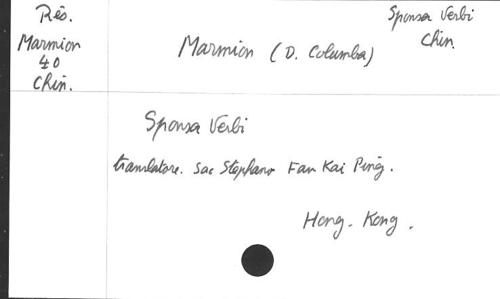 Rés.
Marmion
40
Chin.
Marmion (D. Columba)
Sponsa Verbi
Chin.
Sponsa Verbi
translatore. Sac Stephano Fan Kai Ping.
Hong-Kong.